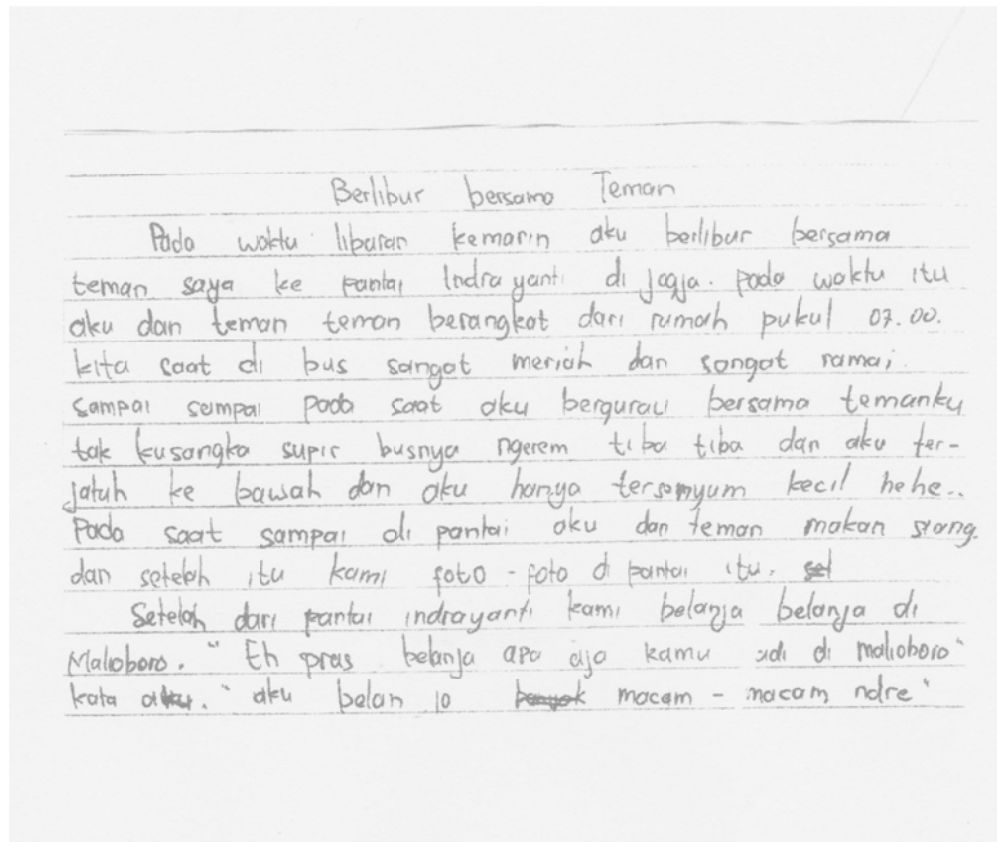 Berlibur bersama Teman
Pada waktu liburan kemarin aku berlibur bersama
teman saya ke pantai Indrayanti di Jogja. pada waktu itu
aku dan teman teman berangkat dari rumah pukul 07.00.
kita saat di bus sangat meriah dan sangat ramai
sampai sampai pada saat aku bergurau bersama temanku
tak kusangka supir busnya ngerem tiba tiba dan aku ter-
jatuh ke bawah dan aku hanya tersenyum kecil hehe..
Pada saat sampai di pantai aku dan teman makan siang.
dan setelah itu kami foto - foto di pantai itu.
Setelah dari pantai indrayanti kami belanja belanja di
Malioboro. "Eh pras belanja apa aja kamu di malioboro"
kata aku. "aku belan macam - macam ndre"